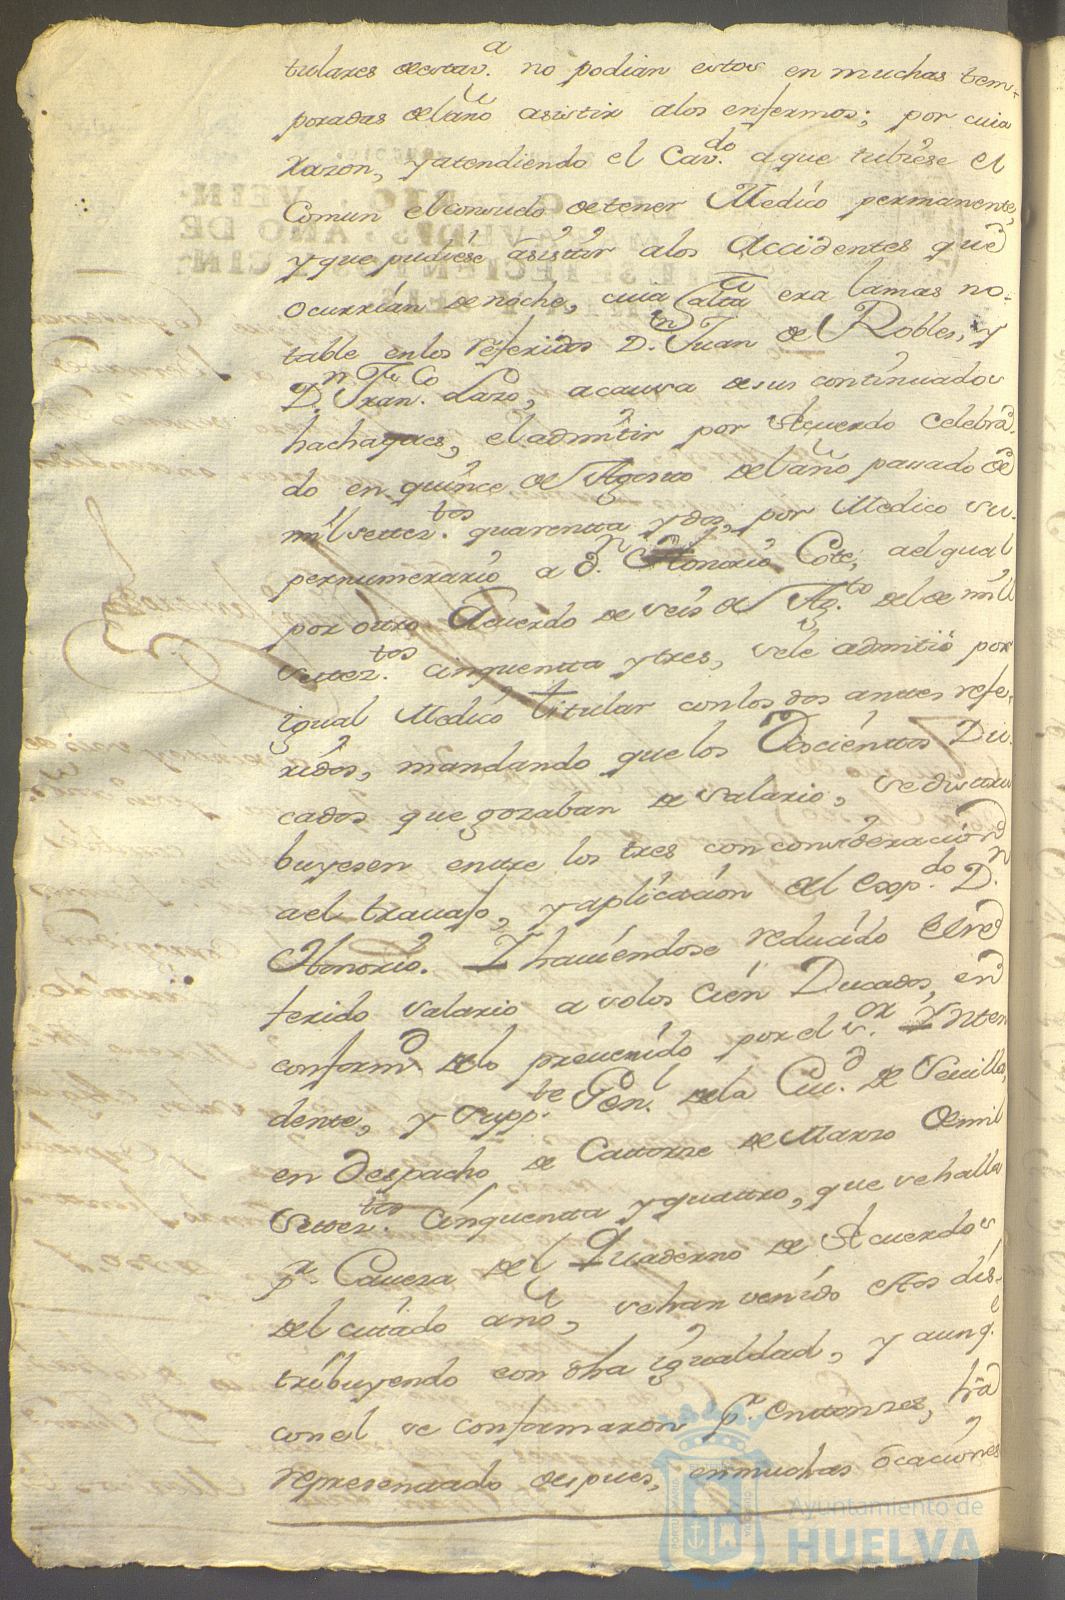 tulares de esta v.ª no podian estos en muchas tem-
poradas del año asistir alos enfermos; por cuia
Razon, y atendiendo el Cav.do a que tubiese el
Comun el consuelo de tener Medico permanente,
y que pudiese asistir alos Accidentes que
ocurrian de noche, cuia falta era la mas no-
table en los referidos D.n Juan de Robles, y
D.n Fran.co Lazo, a causa de sus continuados
hachaques, el admitir por Acuerdo celebra-
do en quince de Agosto del año pasado de
mil setez.tos quarentta y dos, por Medico su-
pernumerario a d.n Honorio Cote, a el qual
por otro Acuerdo de seis de Ag.to del de mill
settez.tos cinquentta y tres, se le admitio por
igual Medico titular con los dos antes refe-
ridos, mandando que los Doscientos Du-
cados que gozaban de salario, se distri-
buyesen entre los tres con consideracion
a el travajo, y aplicacion del exsp.do D.n
Honorio. Y haviendose reducido el re-
ferido salario a solos cien Ducados, en
conformd delo prevenido por el s.or Ynten
dente, y Supp.te Gen.l dela Ciu.d de Sevilla,
en Despacho de Cattorze de Marzo de mil
settez.tos cinquentta y quattro, que se halla
p.r Cavera del Quaderno de Acuerdos
del cittado año, se han venido estos dis-
tribuyendo con dha igualdad, y aunq.e
con el se conformaron p.r enttonzes, han
representtado despues, en muchas ocaciones
Ayuntamiento de
HUELVA